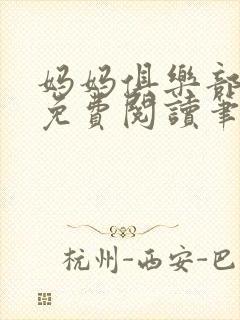 妈妈俱樂部
免費閱讀筆
杭州-西安-巴